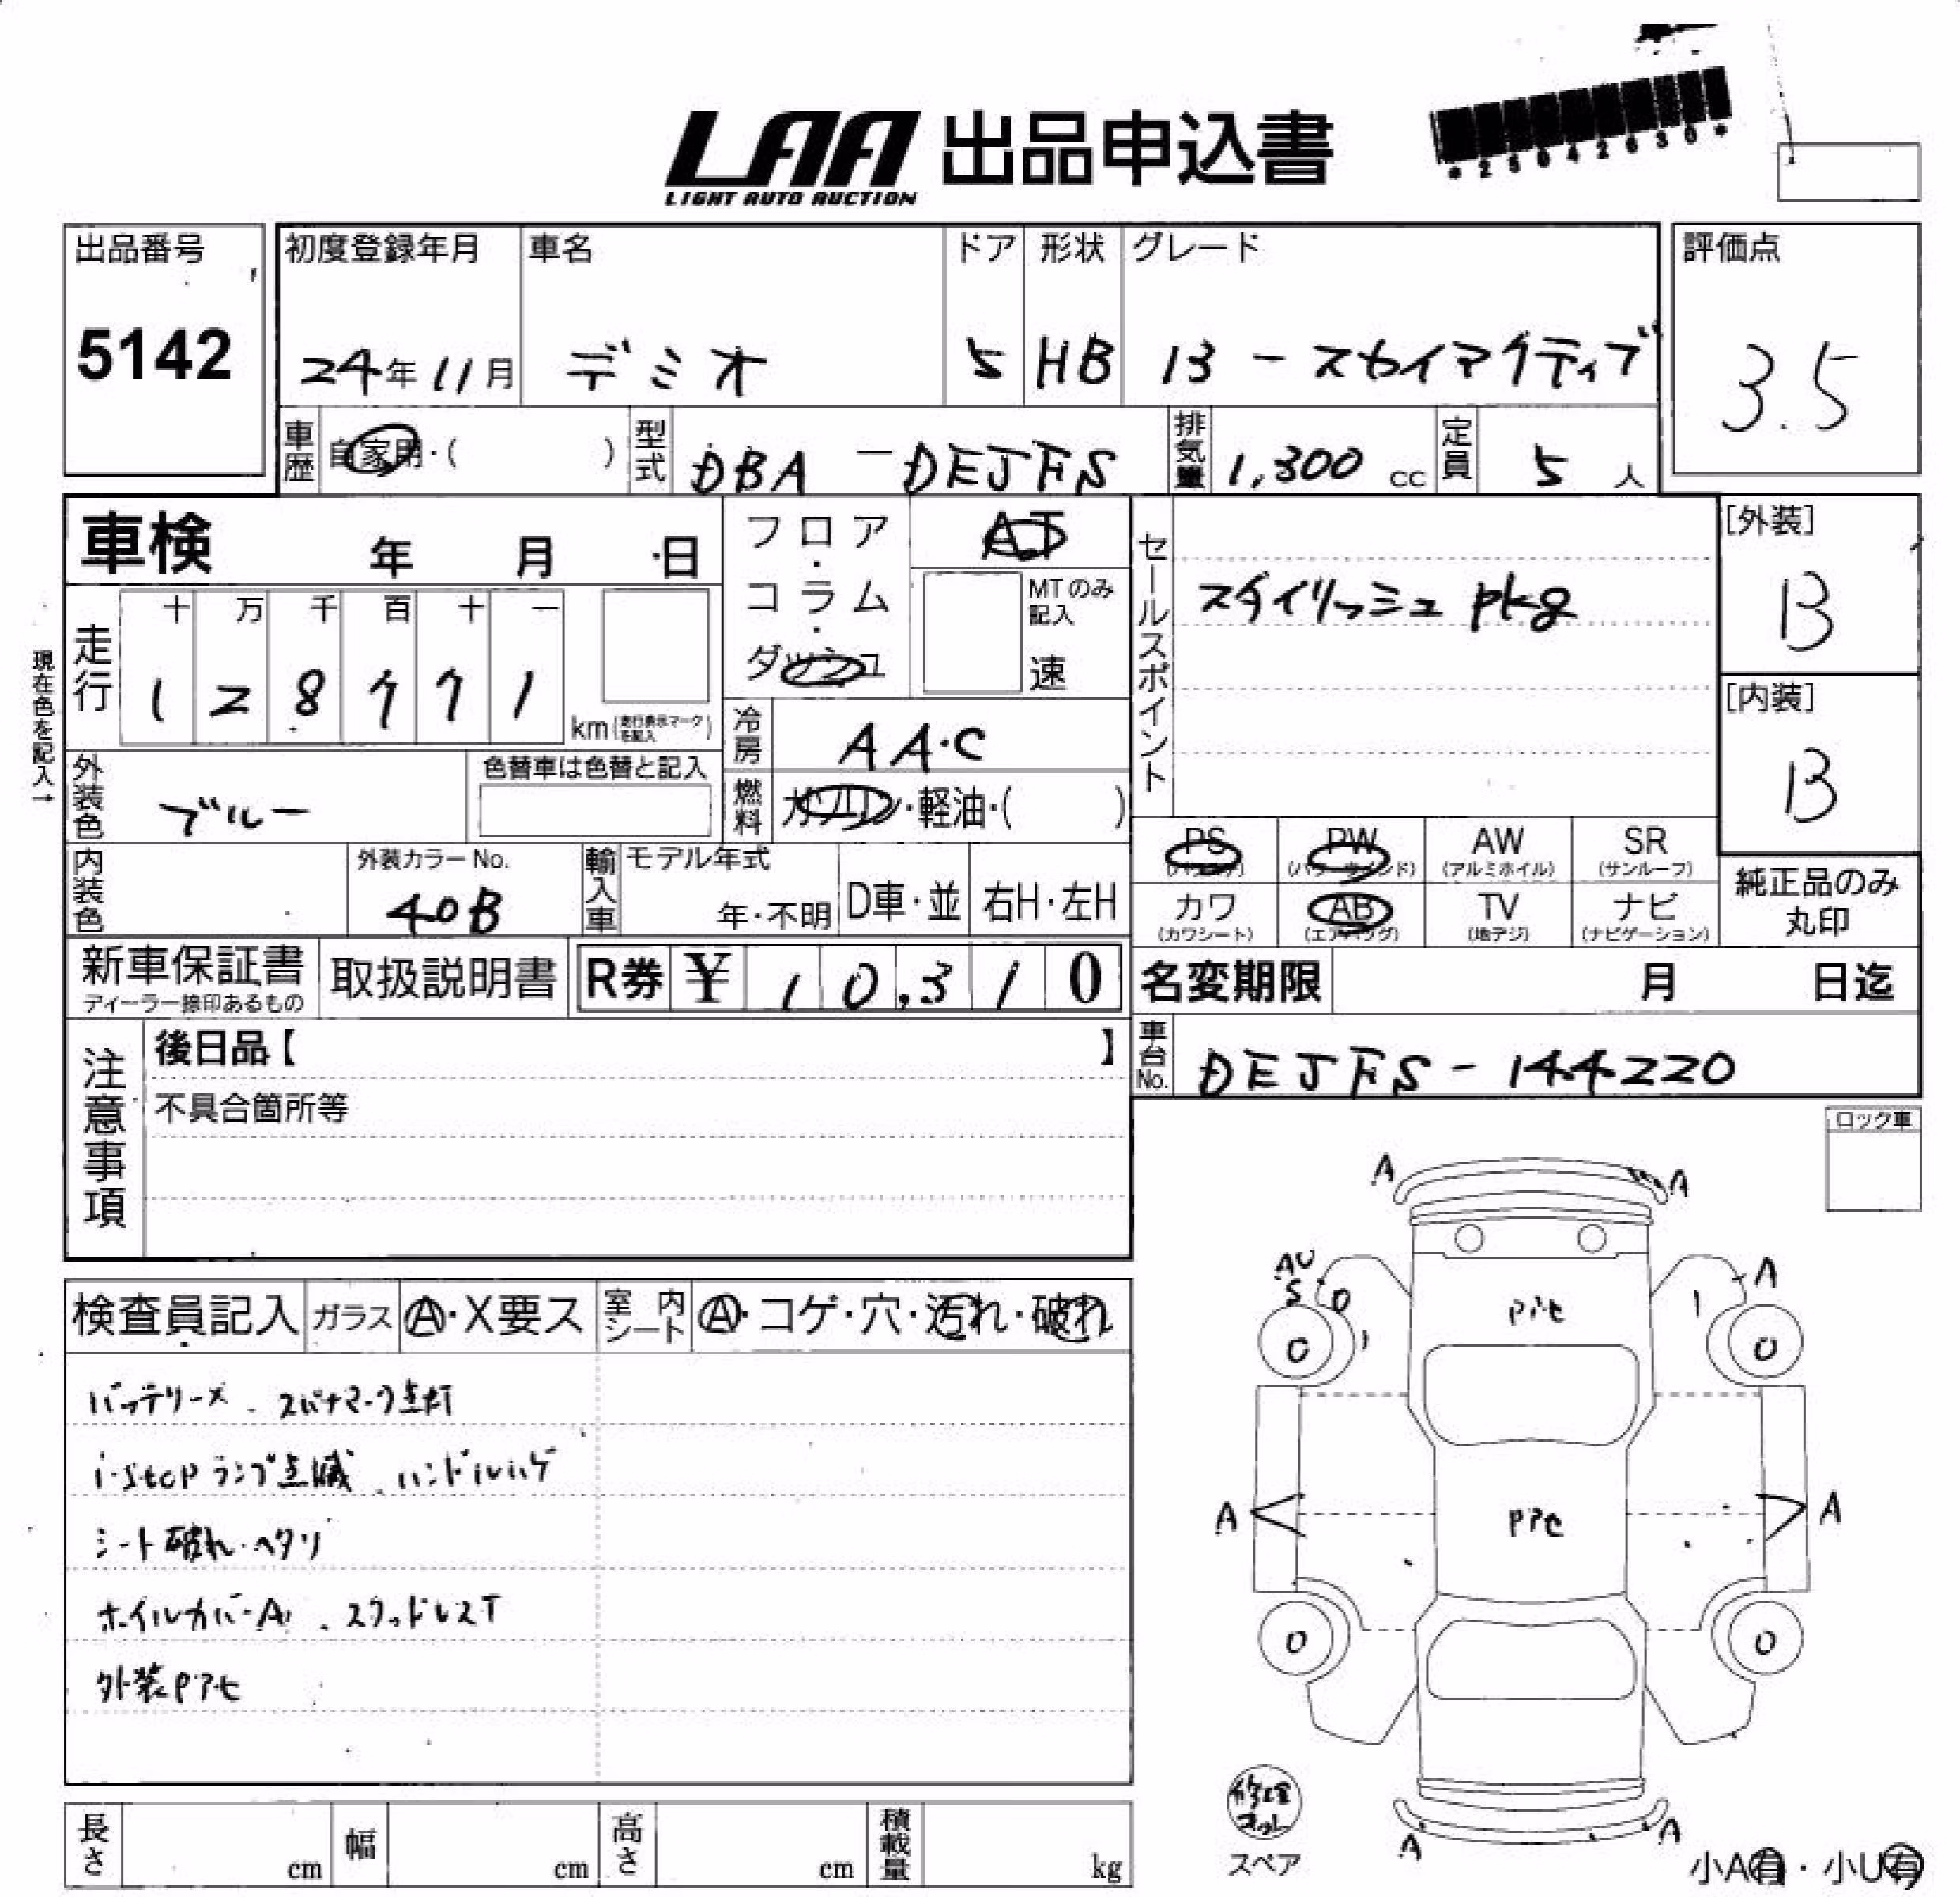 LAA 出品申込書
LIGHT AUTO AUCTION
*25042630*
出品番号
5142
初度登録年月
24年11月
車名
デミオ
ドア
5
形状
HB
グレード
13-スカイアクティブ
評価点
3.5
車歴
自家用・( )
型式
DBA-DEJFS
排気量
1,300 cc
定員
5人
車検 年 月 日
フロア・コラム・ダッシュ
AT
MTのみ記入
速
セールスポイント
スタイリッシュ pkg
[外装]
B
[内装]
B
現在色を記入→
走行
十 万 千 百 十 一
1 2 8 7 7 1
km(走行表示マークを記入)
冷房
AA・C
外装色
ブルー
色替車は色替と記入
燃料
ガソリン・軽油・( )
PS
(パワステ)
PW
(パワーウインド)
AW
(アルミホイル)
SR
(サンルーフ)
内装色
外装カラーNo.
40B
輸入車
モデル年式
年・不明
D車・並
右H・左H
カワ
(カワシート)
AB
(エアバッグ)
TV
(地デジ)
ナビ
(ナビゲーション)
純正品のみ
丸印
新車保証書
ディーラー捺印あるもの
取扱説明書
R券 ¥ 10,310
名変期限 月 日迄
注意事項
後日品【 】
不具合箇所等
車台No.
DEJFS-144220
ロック車
検査員記入
ガラス
A・X要ス
室内シート
A・コゲ・穴・汚れ・破れ
バッテリーX、スパナマーク点灯
i-stopランプ点滅、ハンドルハゲ
シート破れ・ヘタリ
ホイルカバーA、スタッドレスT
外装Pアセ
A A
AU
S
A
Pアセ
0 0
A A
Pアセ
0 0
修理キット
スペア
A A
小A有・小U有
長さ cm
幅 cm
高さ cm
積載量 kg